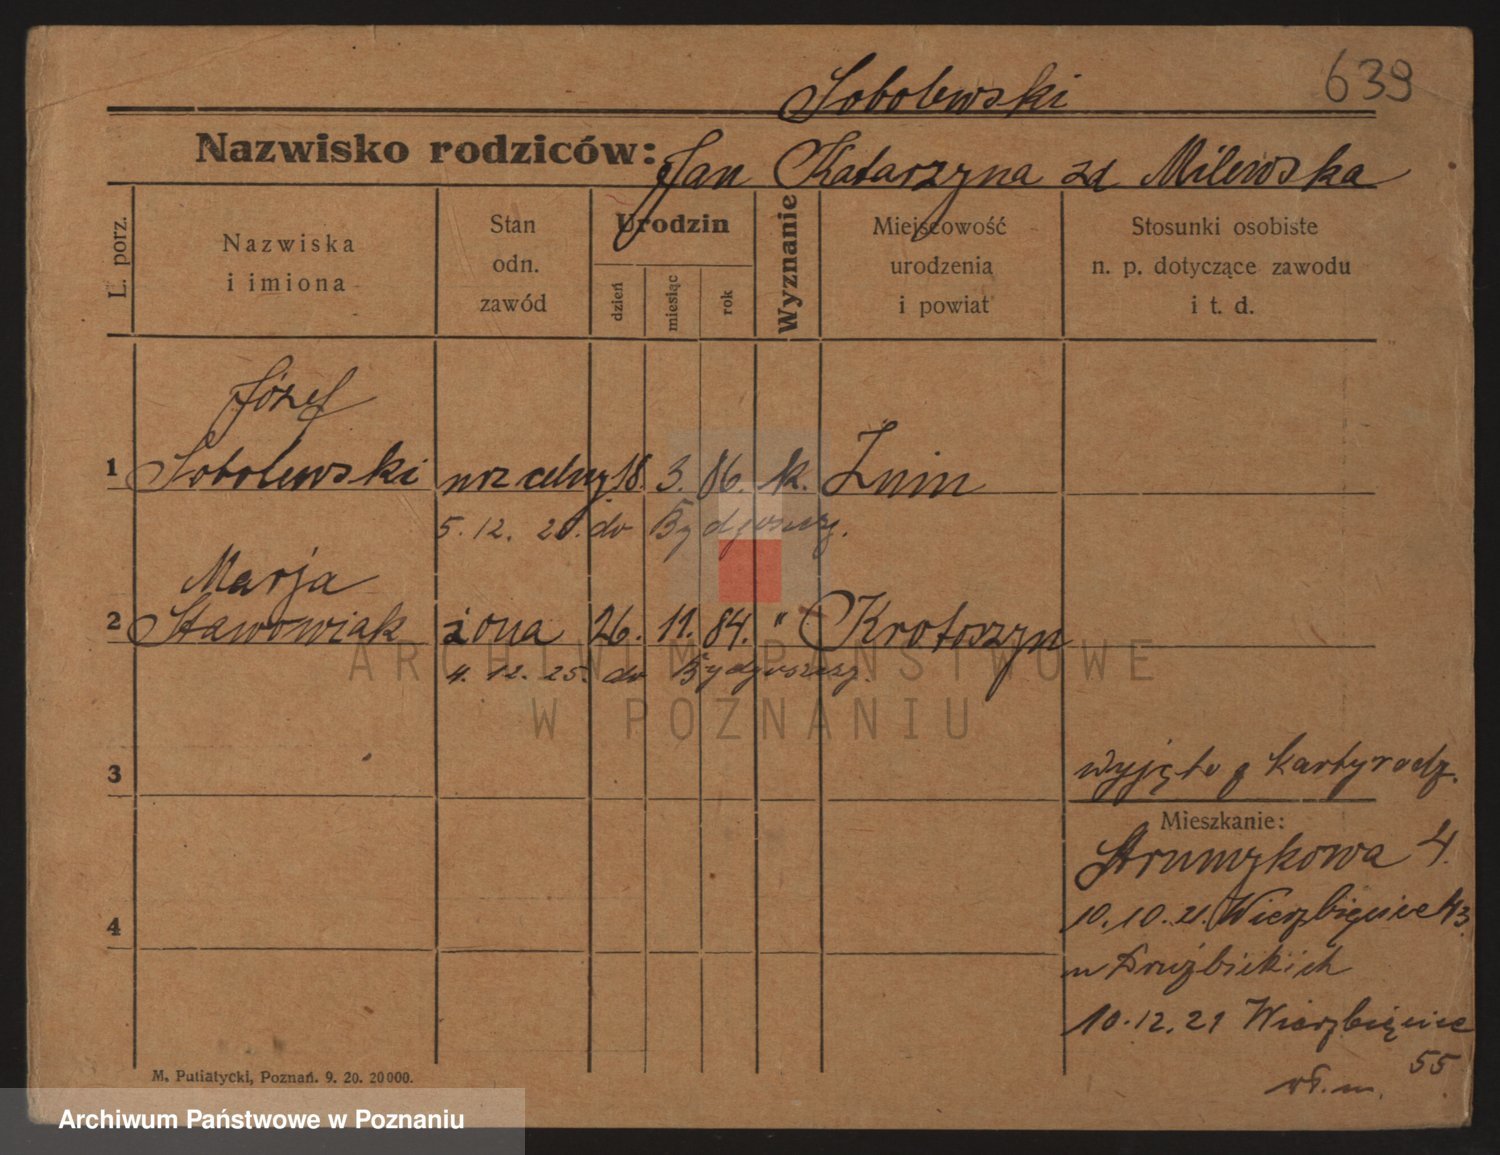 639
Sobolewski
Nazwisko rodziców: Jan Katarzyna zd Milewska
L. porz.
Nazwiska i imiona
Stan odn. zawód
Urodzin
dzień
miesiąc
rok
Wyznanie
Miejscowość urodzenia i powiat
Stosunki osobiste n. p. dotyczące zawodu i t. d.
Józef
1 Sobolewski urz celny 18. 3. 86. k. Żnin
5. 12. 25. do Bydgoszcz.
Marja
2 Stawowiak żona 26. 11. 84. " Krotoszyn
4. 12. 25. do Bydgoszcz.
ARCHIWUM PAŃSTWOWE
W POZNANIU
3
wyjęto z karty rodz.
Mieszkanie:
Strumykowa 4.
4
10.10.21. Wierzbięcice 43
u Drużbickich
10.12.21 Wierzbięcice
55
M. Putiatycki, Poznań. 9. 20. 20000.
Archiwum Państwowe w Poznaniu